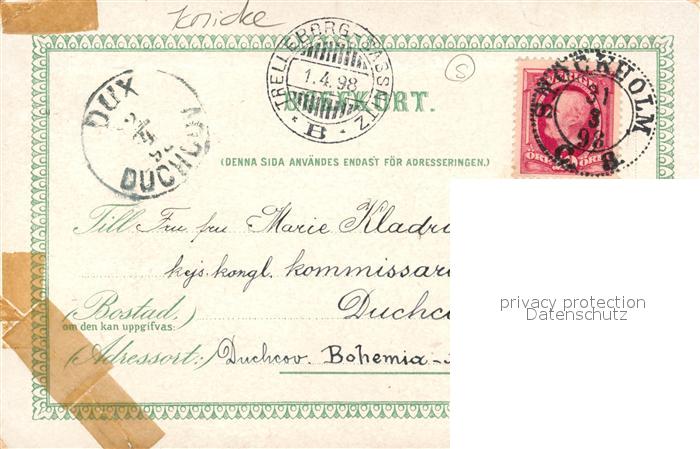 TRELLEBORG-SASSNITZ
1.4.98
B
BREFKORT.
STOCKHOLM
31
3
98
DUX
DUCHCOV
(DENNA SIDA ANVÄNDES ENDAST FÖR ADRESSERINGEN.)
S
Till Fru fru Marie Kladru
kejs. kongl. kommissar
(Bostad,) Duchco
om den kan uppgifvas:
(Adressort:) Duchcov. Bohemia-
privacy protection
Datenschutz